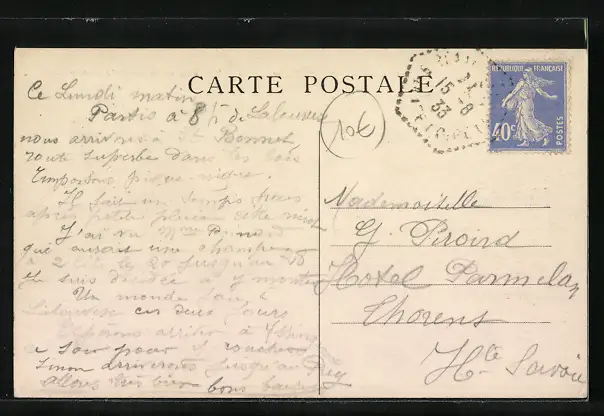 CARTE POSTALE
RÉPUBLIQUE FRANÇAISE
40c
POSTES
15 -8
33
10€
Ce Lundi matin
Partis à 8h de Lalouvesc
nous arrivons à St Bonnet
route superbe dans les bois
Emportons pique-nique.
Il fait un temps frais
après petite pluie cette nuit
J'ai vu Mme
qui aurait une chambre
à 2 lits le 20 jusqu'au
Je suis décidée à y monter
Un monde fou à
Lalouvesc ces deux jours
Espérons arriver à
ce soir pour y coucher
Sinon arriverons jusqu'au Puy
allons très bien bons baisers
Mademoiselle
G. Piroird
Hotel Parmelan
Thorens
Hte Savoie